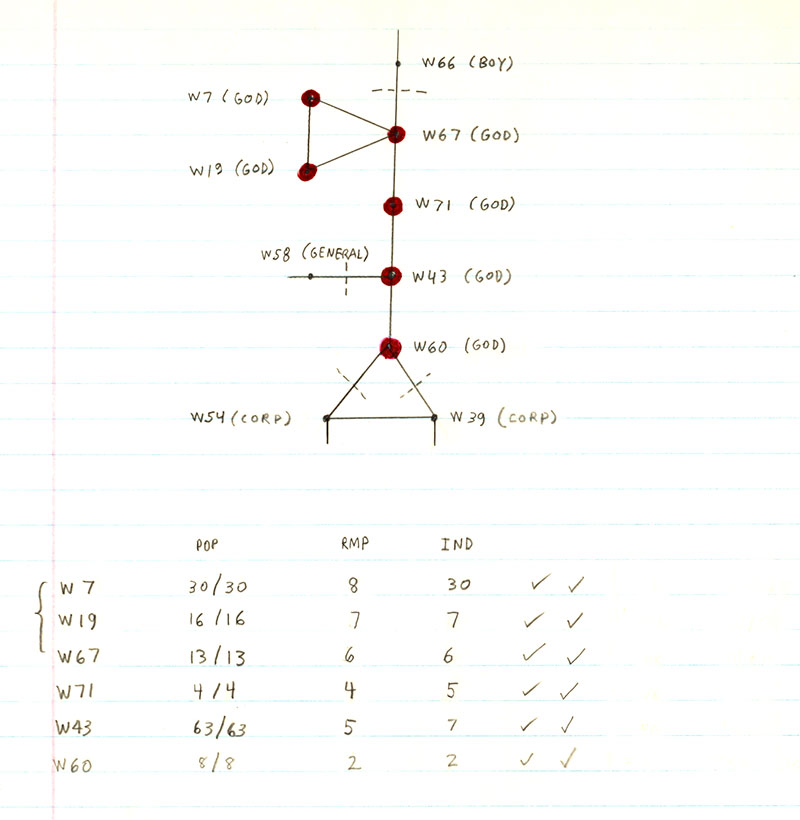 W66 (BOY)
W7 (GOD)
W67 (GOD)
W19 (GOD)
W71 (GOD)
W58 (GENERAL)
W43 (GOD)
W60 (GOD)
W54 (CORP)
W39 (CORP)
POP RMP IND
W7 30/30 8 30 ✓ ✓
W19 16/16 7 7 ✓ ✓
W67 13/13 6 6 ✓ ✓
W71 4/4 4 5 ✓ ✓
W43 63/63 5 7 ✓ ✓
W60 8/8 2 2 ✓ ✓